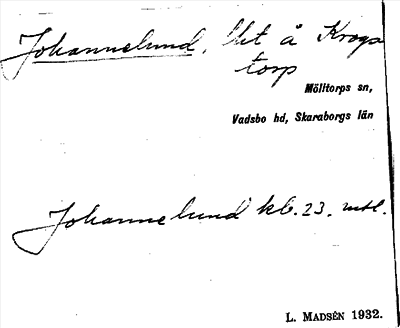 Johannelund, lht å Krogs
torp
Mölltorps sn,
Vadsbo hd, Skaraborgs län
Johannelund kb. 23. mtl.
L. MADSÉN 1932.